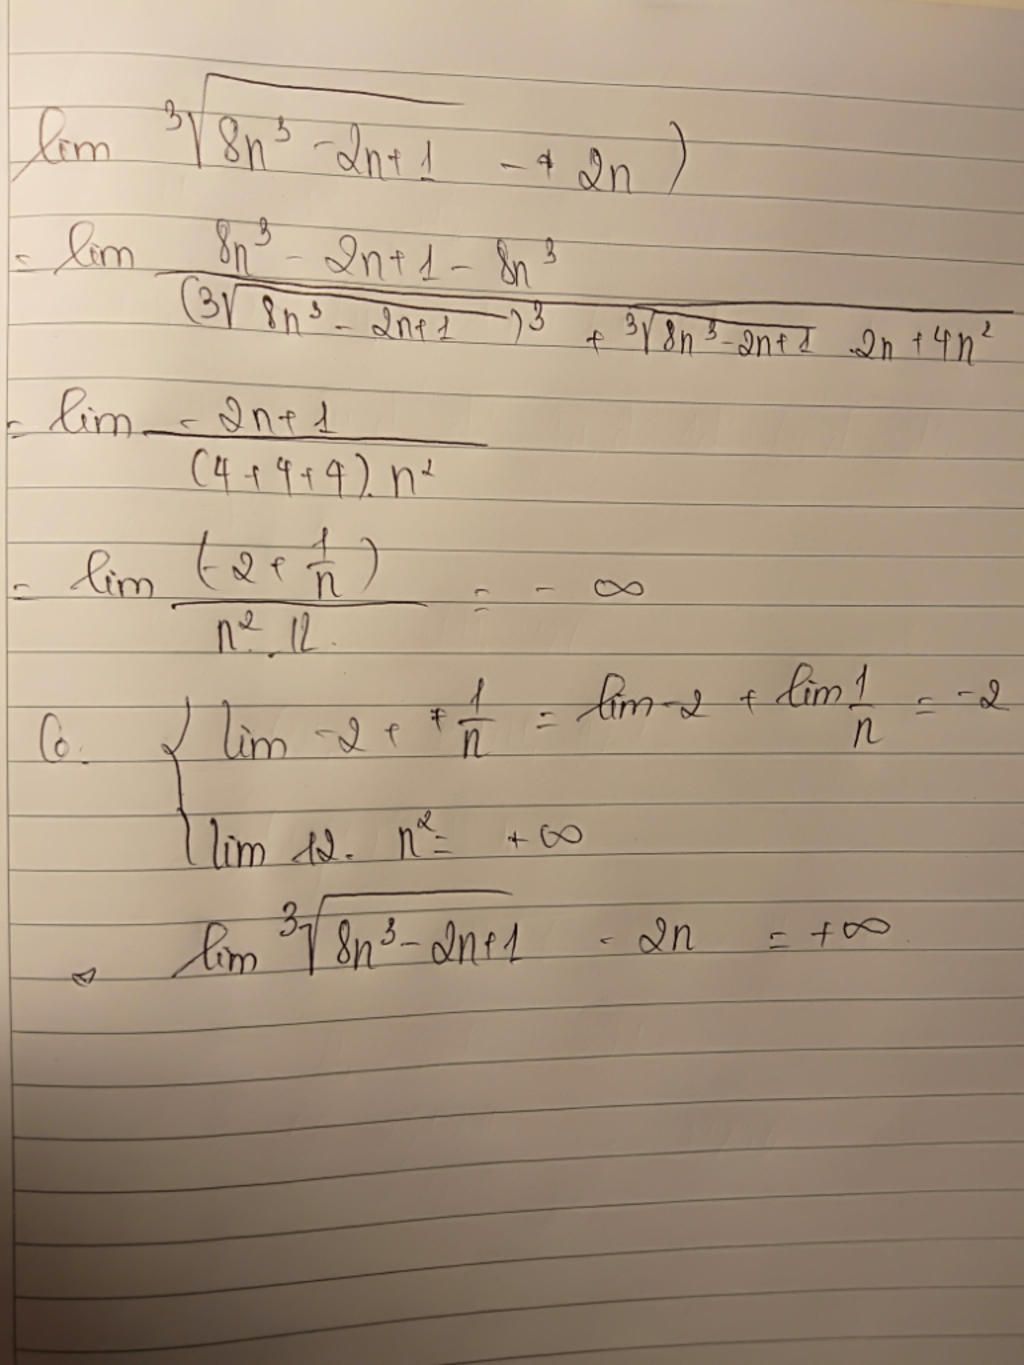 lim ∛(8n³ - 2n + 1) - + 2n )
= lim (8n³ - 2n + 1 - 8n³) / ((∛(8n³ - 2n + 1))³ + ∛(8n³ - 2n + 1) .2n + 4n²)
= lim (-2n + 1) / ((4 + 4 + 4). n²)
= lim (-2 + 1/n) / (n² . 12.) = - ∞
Có. { lim -2 + + 1/n = lim -2 + lim 1/n = -2
lim 12. n² = +∞
lim ∛(8n³ - 2n + 1) - 2n = +∞